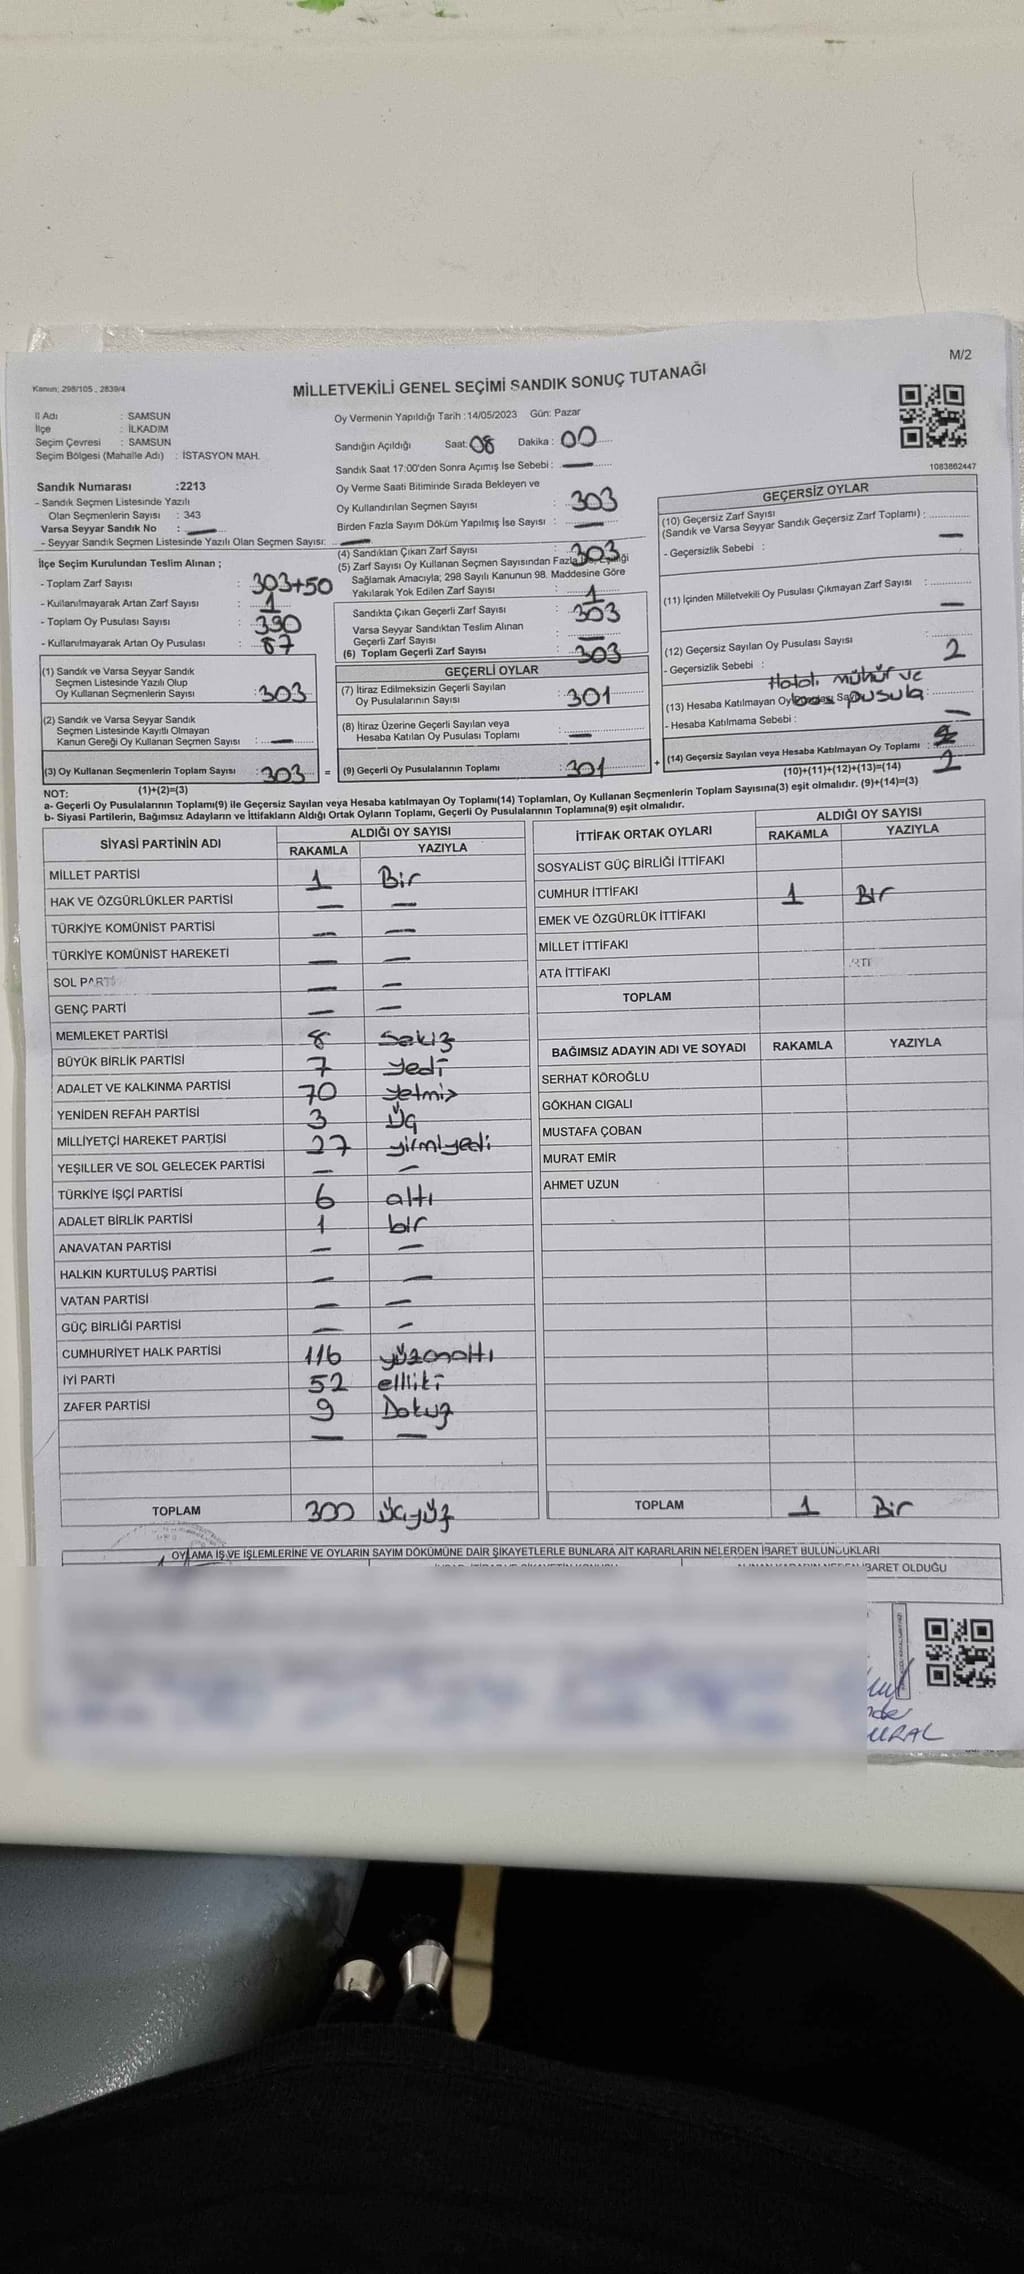 M/2
Kanun: 298/105 , 2839/4
MİLLETVEKİLİ GENEL SEÇİMİ SANDIK SONUÇ TUTANAĞI
İl Adı : SAMSUN
İlçe : İLKADIM
Seçim Çevresi : SAMSUN
Seçim Bölgesi (Mahalle Adı) : İSTASYON MAH.
Oy Vermenin Yapıldığı Tarih : 14/05/2023 Gün: Pazar
Sandığın Açıldığı Saat: 08 Dakika : 00
Sandık Saat 17:00'den Sonra Açımış İse Sebebi : —
1083862447
Sandık Numarası :2213
- Sandık Seçmen Listesinde Yazılı
Olan Seçmenlerin Sayısı : 343
Varsa Seyyar Sandık No : —
- Seyyar Sandık Seçmen Listesinde Yazılı Olan Seçmen Sayısı: —
Oy Verme Saati Bitiminde Sırada Bekleyen ve
Oy Kullandırılan Seçmen Sayısı : 303
Birden Fazla Sayım Döküm Yapılmış İse Sayısı : —
İlçe Seçim Kurulundan Teslim Alınan ;
- Toplam Zarf Sayısı : 303+50
- Kullanılmayarak Artan Zarf Sayısı : 1
- Toplam Oy Pusulası Sayısı : 390
- Kullanılmayarak Artan Oy Pusulası : 87
(1) Sandık ve Varsa Seyyar Sandık
Seçmen Listesinde Yazılı Olup
Oy Kullanan Seçmenlerin Sayısı : 303
(2) Sandık ve Varsa Seyyar Sandık
Seçmen Listesinde Kayıtlı Olmayan
Kanun Gereği Oy Kullanan Seçmen Sayısı : —
(3) Oy Kullanan Seçmenlerin Toplam Sayısı : 303
(4) Sandıktan Çıkan Zarf Sayısı : 303
(5) Zarf Sayısı Oy Kullanan Seçmen Sayısından Fazla İse, Eşitliği
Sağlamak Amacıyla; 298 Sayılı Kanunun 98. Maddesine Göre
Yakılarak Yok Edilen Zarf Sayısı : 1
Sandıkta Çıkan Geçerli Zarf Sayısı : 303
Varsa Seyyar Sandıktan Teslim Alınan
Geçerli Zarf Sayısı : —
(6) Toplam Geçerli Zarf Sayısı : 303
GEÇERLİ OYLAR
(7) İtiraz Edilmeksizin Geçerli Sayılan
Oy Pusulalarının Sayısı : 301
(8) İtiraz Üzerine Geçerli Sayılan veya
Hesaba Katılan Oy Pusulası Toplamı : —
= (9) Geçerli Oy Pusulalarının Toplamı : 301
GEÇERSİZ OYLAR
(10) Geçersiz Zarf Sayısı
(Sandık ve Varsa Seyyar Sandık Geçersiz Zarf Toplamı) : —
- Geçersizlik Sebebi :
(11) İçinden Milletvekili Oy Pusulası Çıkmayan Zarf Sayısı : —
(12) Geçersiz Sayılan Oy Pusulası Sayısı : 2
- Geçersizlik Sebebi : Hatalı mühür ve
boş pusula
(13) Hesaba Katılmayan Oy Pusulası Sayısı : —
- Hesaba Katılmama Sebebi :
+ (14) Geçersiz Sayılan veya Hesaba Katılmayan Oy Toplamı : 2
(10)+(11)+(12)+(13)=(14)
NOT: (1)+(2)=(3)
a- Geçerli Oy Pusulalarının Toplamı(9) ile Geçersiz Sayılan veya Hesaba katılmayan Oy Toplamı(14) Toplamları, Oy Kullanan Seçmenlerin Toplam Sayısına(3) eşit olmalıdır. (9)+(14)=(3)
b- Siyasi Partilerin, Bağımsız Adayların ve İttifakların Aldığı Ortak Oyların Toplamı, Geçerli Oy Pusulalarının Toplamına(9) eşit olmalıdır.
SİYASİ PARTİNİN ADI ALDIĞI OY SAYISI
RAKAMLA YAZIYLA
MİLLET PARTİSİ 1 Bir
HAK VE ÖZGÜRLÜKLER PARTİSİ — —
TÜRKİYE KOMÜNİST PARTİSİ — —
TÜRKİYE KOMÜNİST HAREKETİ — —
SOL PARTİ — —
GENÇ PARTİ — —
MEMLEKET PARTİSİ 8 Sekiz
BÜYÜK BİRLİK PARTİSİ 7 yedi
ADALET VE KALKINMA PARTİSİ 70 yetmiş
YENİDEN REFAH PARTİSİ 3 Üç
MİLLİYETÇİ HAREKET PARTİSİ 27 yirmiyedi
YEŞİLLER VE SOL GELECEK PARTİSİ — —
TÜRKİYE İŞÇİ PARTİSİ 6 altı
ADALET BİRLİK PARTİSİ 1 bir
ANAVATAN PARTİSİ — —
HALKIN KURTULUŞ PARTİSİ — —
VATAN PARTİSİ — —
GÜÇ BİRLİĞİ PARTİSİ — —
CUMHURİYET HALK PARTİSİ 116 yüzonaltı
İYİ PARTİ 52 elliiki
ZAFER PARTİSİ 9 Dokuz
— —
TOPLAM 300 üçyüz
İTTİFAK ORTAK OYLARI ALDIĞI OY SAYISI
RAKAMLA YAZIYLA
SOSYALİST GÜÇ BİRLİĞİ İTTİFAKI
CUMHUR İTTİFAKI 1 Bir
EMEK VE ÖZGÜRLÜK İTTİFAKI
MİLLET İTTİFAKI
ATA İTTİFAKI
TOPLAM
BAĞIMSIZ ADAYIN ADI VE SOYADI RAKAMLA YAZIYLA
SERHAT KÖROĞLU
GÖKHAN CIGALI
MUSTAFA ÇOBAN
MURAT EMİR
AHMET UZUN
TOPLAM 1 Bir
OYLAMA İŞ VE İŞLEMLERİNE VE OYLARIN SAYIM DÖKÜMÜNE DAİR ŞİKAYETLERLE BUNLARA AİT KARARLARIN NELERDEN İBARET BULUNDUKLARI
İBARET OLDUĞU
URAL